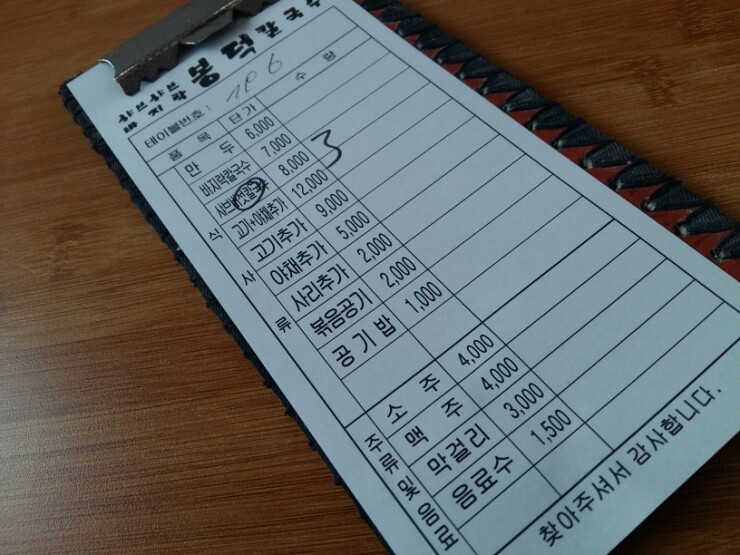 샤브샤브
바지락 봉덕칼국수
테이블번호 : 2P 6
품 목 단가 수 량
만 두 6,000
바지락칼국수 7,000
샤브버섯칼국수 8,000 3
고기+야채추가 12,000
고기추가 9,000
야채추가 5,000
사리추가 2,000
볶음공기 2,000
공 기 밥 1,000
식 사 류
소 주 4,000
맥 주 4,000
막걸리 3,000
음료수 1,500
주류 및 음료
찾아주셔서 감사합니다.